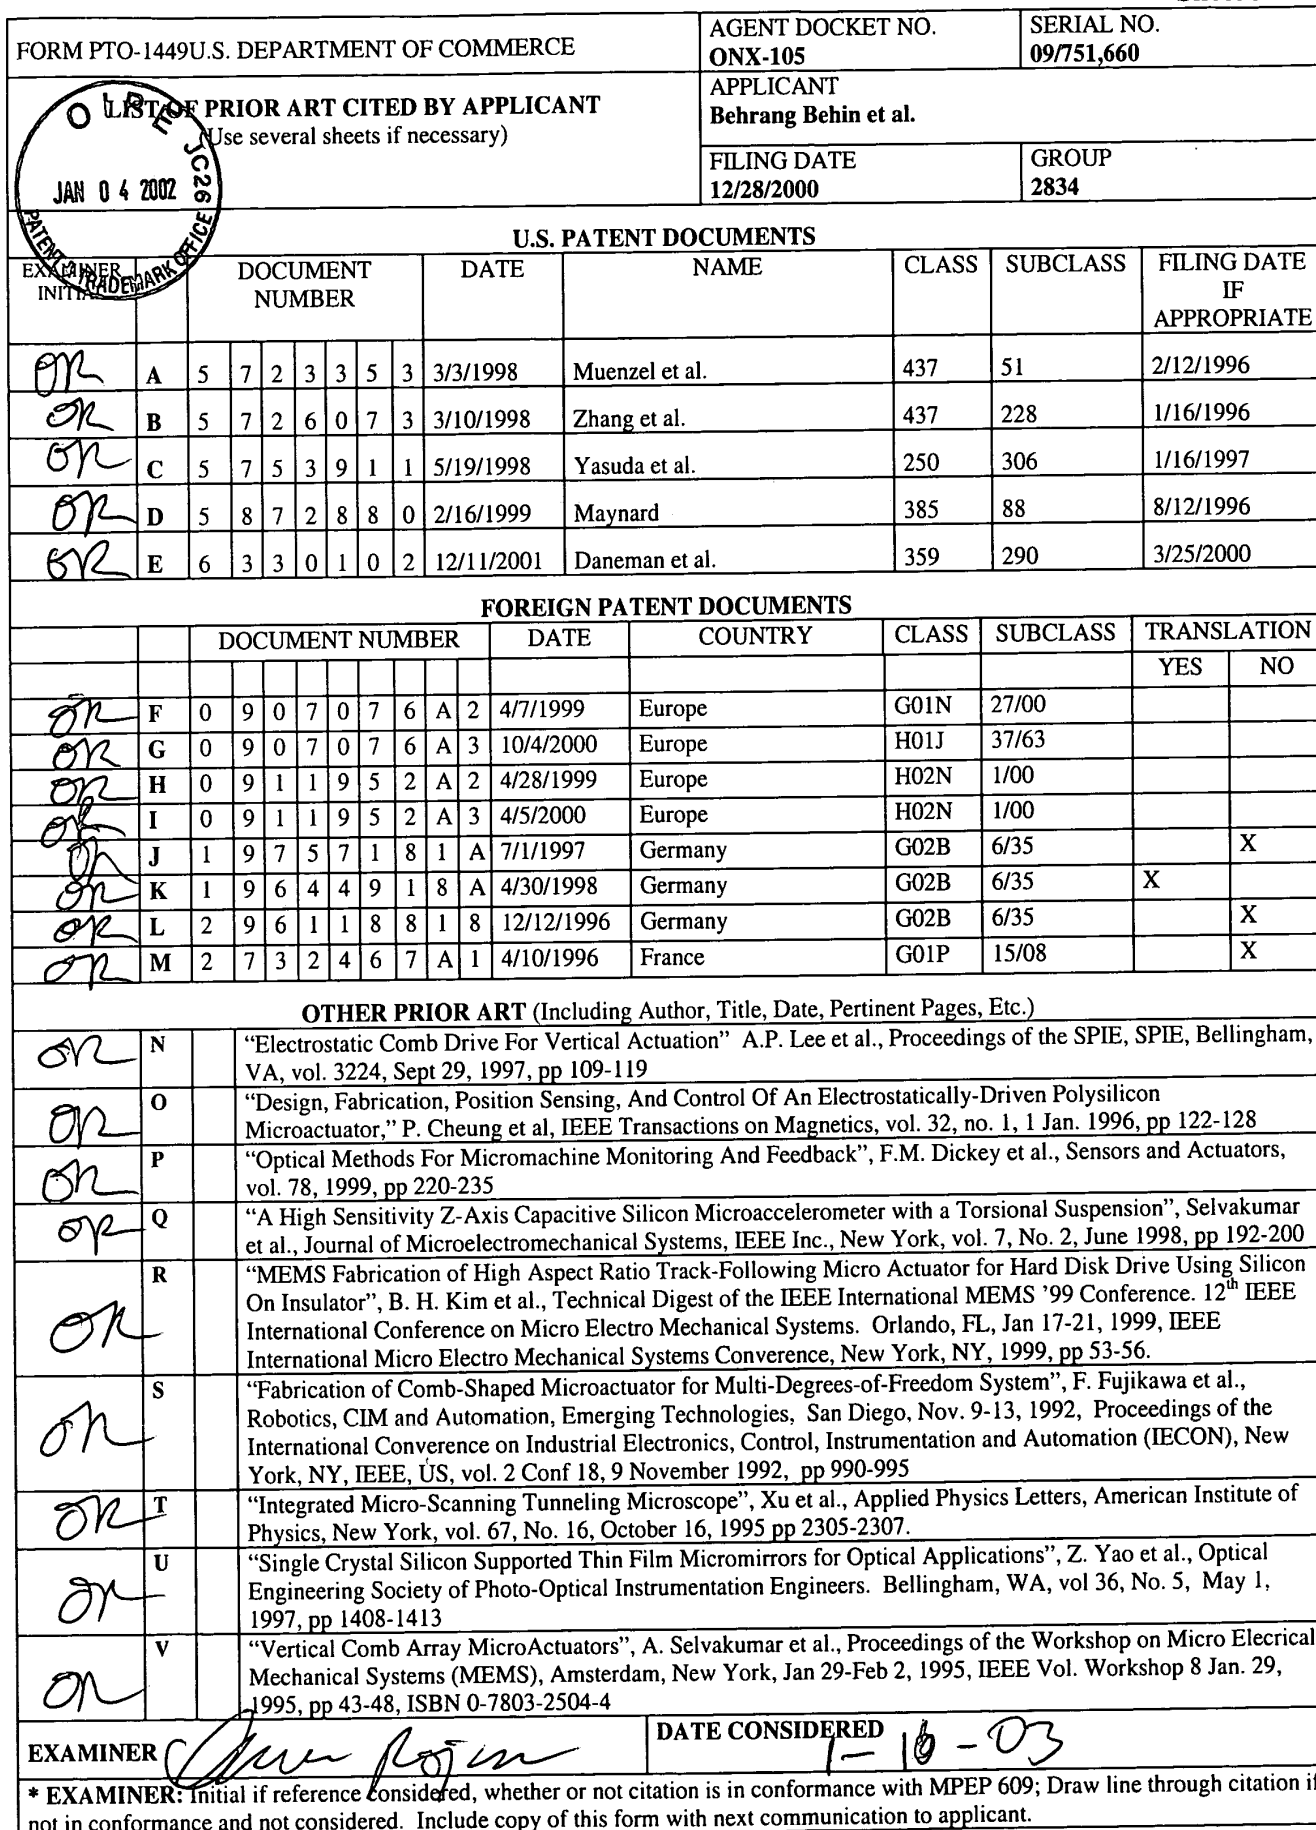 FORM PTO-1449U.S. DEPARTMENT OF COMMERCE
AGENT DOCKET NO.
ONX-105
SERIAL NO.
09/751,660
LIST OF PRIOR ART CITED BY APPLICANT
(Use several sheets if necessary)
APPLICANT
Behrang Behin et al.
FILING DATE
12/28/2000
GROUP
2834
O I P E JC26
JAN 04 2002
PATENT & TRADEMARK OFFICE
U.S. PATENT DOCUMENTS
EXAMINER INITIAL DOCUMENT NUMBER DATE NAME CLASS SUBCLASS FILING DATE IF APPROPRIATE
OR A 5 7 2 3 3 5 3 3/3/1998 Muenzel et al. 437 51 2/12/1996
OR B 5 7 2 6 0 7 3 3/10/1998 Zhang et al. 437 228 1/16/1996
OR C 5 7 5 3 9 1 1 5/19/1998 Yasuda et al. 250 306 1/16/1997
OR D 5 8 7 2 8 8 0 2/16/1999 Maynard 385 88 8/12/1996
OR E 6 3 3 0 1 0 2 12/11/2001 Daneman et al. 359 290 3/25/2000
FOREIGN PATENT DOCUMENTS
DOCUMENT NUMBER DATE COUNTRY CLASS SUBCLASS TRANSLATION
YES NO
OR F 0 9 0 7 0 7 6 A 2 4/7/1999 Europe G01N 27/00
OR G 0 9 0 7 0 7 6 A 3 10/4/2000 Europe H01J 37/63
OR H 0 9 1 1 9 5 2 A 2 4/28/1999 Europe H02N 1/00
OR I 0 9 1 1 9 5 2 A 3 4/5/2000 Europe H02N 1/00
OR J 1 9 7 5 7 1 8 1 A 7/1/1997 Germany G02B 6/35 X
OR K 1 9 6 4 4 9 1 8 A 4/30/1998 Germany G02B 6/35 X
OR L 2 9 6 1 1 8 8 1 8 12/12/1996 Germany G02B 6/35 X
OR M 2 7 3 2 4 6 7 A 1 4/10/1996 France G01P 15/08 X
OTHER PRIOR ART (Including Author, Title, Date, Pertinent Pages, Etc.)
OR N "Electrostatic Comb Drive For Vertical Actuation" A.P. Lee et al., Proceedings of the SPIE, SPIE, Bellingham,
VA, vol. 3224, Sept 29, 1997, pp 109-119
OR O "Design, Fabrication, Position Sensing, And Control Of An Electrostatically-Driven Polysilicon
Microactuator," P. Cheung et al, IEEE Transactions on Magnetics, vol. 32, no. 1, 1 Jan. 1996, pp 122-128
OR P "Optical Methods For Micromachine Monitoring And Feedback", F.M. Dickey et al., Sensors and Actuators,
vol. 78, 1999, pp 220-235
OR Q "A High Sensitivity Z-Axis Capacitive Silicon Microaccelerometer with a Torsional Suspension", Selvakumar
et al., Journal of Microelectromechanical Systems, IEEE Inc., New York, vol. 7, No. 2, June 1998, pp 192-200
OR R "MEMS Fabrication of High Aspect Ratio Track-Following Micro Actuator for Hard Disk Drive Using Silicon
On Insulator", B. H. Kim et al., Technical Digest of the IEEE International MEMS '99 Conference. 12th IEEE
International Conference on Micro Electro Mechanical Systems. Orlando, FL, Jan 17-21, 1999, IEEE
International Micro Electro Mechanical Systems Converence, New York, NY, 1999, pp 53-56.
OR S "Fabrication of Comb-Shaped Microactuator for Multi-Degrees-of-Freedom System", F. Fujikawa et al.,
Robotics, CIM and Automation, Emerging Technologies, San Diego, Nov. 9-13, 1992, Proceedings of the
International Converence on Industrial Electronics, Control, Instrumentation and Automation (IECON), New
York, NY, IEEE, US, vol. 2 Conf 18, 9 November 1992, pp 990-995
OR T "Integrated Micro-Scanning Tunneling Microscope", Xu et al., Applied Physics Letters, American Institute of
Physics, New York, vol. 67, No. 16, October 16, 1995 pp 2305-2307.
OR U "Single Crystal Silicon Supported Thin Film Micromirrors for Optical Applications", Z. Yao et al., Optical
Engineering Society of Photo-Optical Instrumentation Engineers. Bellingham, WA, vol 36, No. 5, May 1,
1997, pp 1408-1413
OR V "Vertical Comb Array MicroActuators", A. Selvakumar et al., Proceedings of the Workshop on Micro Elecrical
Mechanical Systems (MEMS), Amsterdam, New York, Jan 29-Feb 2, 1995, IEEE Vol. Workshop 8 Jan. 29,
1995, pp 43-48, ISBN 0-7803-2504-4
EXAMINER
DATE CONSIDERED 1-16-03
* EXAMINER: Initial if reference considered, whether or not citation is in conformance with MPEP 609; Draw line through citation if
not in conformance and not considered. Include copy of this form with next communication to applicant.